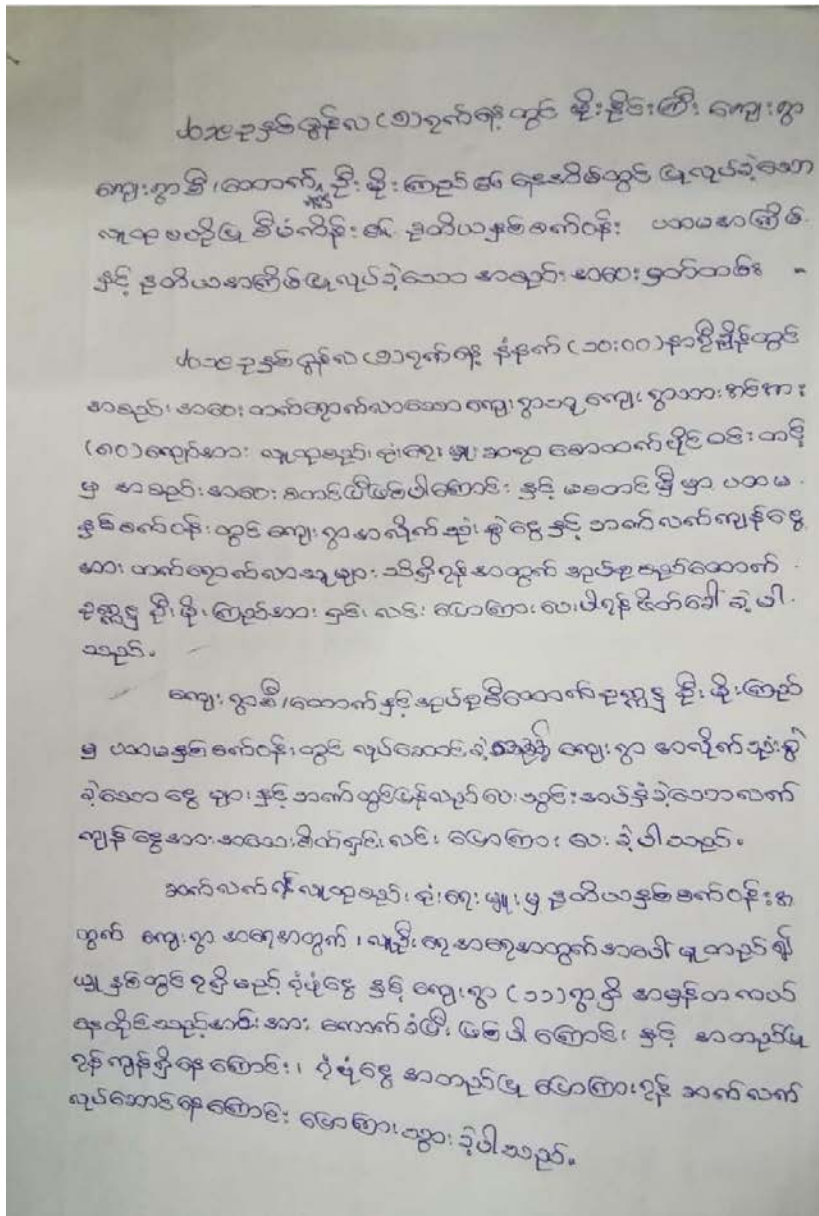 ၁၃၈၃ခုနှစ်ဝါဆိုလ (၁)ရက်နေ့တွင် စိုးနိုင်းကြီး ကျေးရွာ
ကျေးရွာစီ/ထောက် ဦးစိုးကြည်၏ နေအိမ်တွင် ပြုလုပ်ခဲ့သော
လူထုဗဟိုပြု စီမံကိန်း၏ ဒုတိယနှစ်စက်ဝန်း ပထမအကြိမ်
နှင့် ဒုတိယအကြိမ်ပြုလုပ်ခဲ့သော အစည်းအဝေးမှတ်တမ်း
နံနက် (၁၀:၀၀)နာရီချိန်တွင်
အစည်းအဝေး တက်ရောက်လာသော ကျေးရွာသူ ကျေးရွာသားစုစုအား
(၈၀)ကျော်အား လူထုစည်းရုံးရေးမှူး ဆရာ စောထက်ပိုင်ဝင်းတင့်
မှ အစည်းအဝေး စတင်ပြီဖြစ်ပါကြောင်း နှင့် မစတင်မှီမှာ ပထမ
နှစ်စက်ဝန်းတွင် ကျေးရွာအလိုက်သုံးစွဲငွေ နှင့် ဘဏ်လက်ကျန်ငွေ
အား တက်ရောက်လာသူများ သိရှိရန်အတွက် အုပ်စုစည်ထောက်
ဥက္ကဋ္ဌ ဦးစိုးကြည်အား ရှင်းလင်း ပြောကြားပေးပါရန် ဖိတ်ခေါ်ခဲ့ပါ
သည်။
ကျေးရွာစီ/ထောက်နှင့် အုပ်စုစီထောက်ဥက္ကဋ္ဌ ဦးစိုးကြည်
မှ ပထမနှစ်စက်ဝန်းတွင် လုပ်ဆောင်ခဲ့ ကျေးရွာ အလိုက်သုံးစွဲ
ခဲ့သော ငွေများနှင့် ဘဏ်တွင်ပြန်လည်ပေးသွင်းအပ်နှံခဲ့သောလက်
ကျန်ငွေအားအသေးစိတ်ရှင်းလင်း ပြောကြားပေးခဲ့ပါသည်။
ဆက်လက်၍ လူထုစည်းရုံးရေးမှူးမှ ဒုတိယနှစ်စက်ဝန်းအ
တွက် ကျေးရွာ အရေအတွက်၊ လူဦးရေအရေအတွက်အပေါ် မူတည်၍
ယခုနှစ်တွင် ရရှိမည့် ရံပုံငွေ နှင့် ကျေးရွာ (၁၁)ရွာရှိ အမှန်တကယ်
နေထိုင်သည့်စာရင်းအား ကောက်ခံပြီးဖြစ်ပါကြောင်း နှင့် အတည်ပြု
ရန်ကျန်ရှိနေကြောင်း၊ ရံပုံငွေ အတည်ပြု ပြောကြားရန် ဆက်လက်
လုပ်ဆောင်နေကြောင်း ပြောကြားသွားခဲ့ပါသည်။